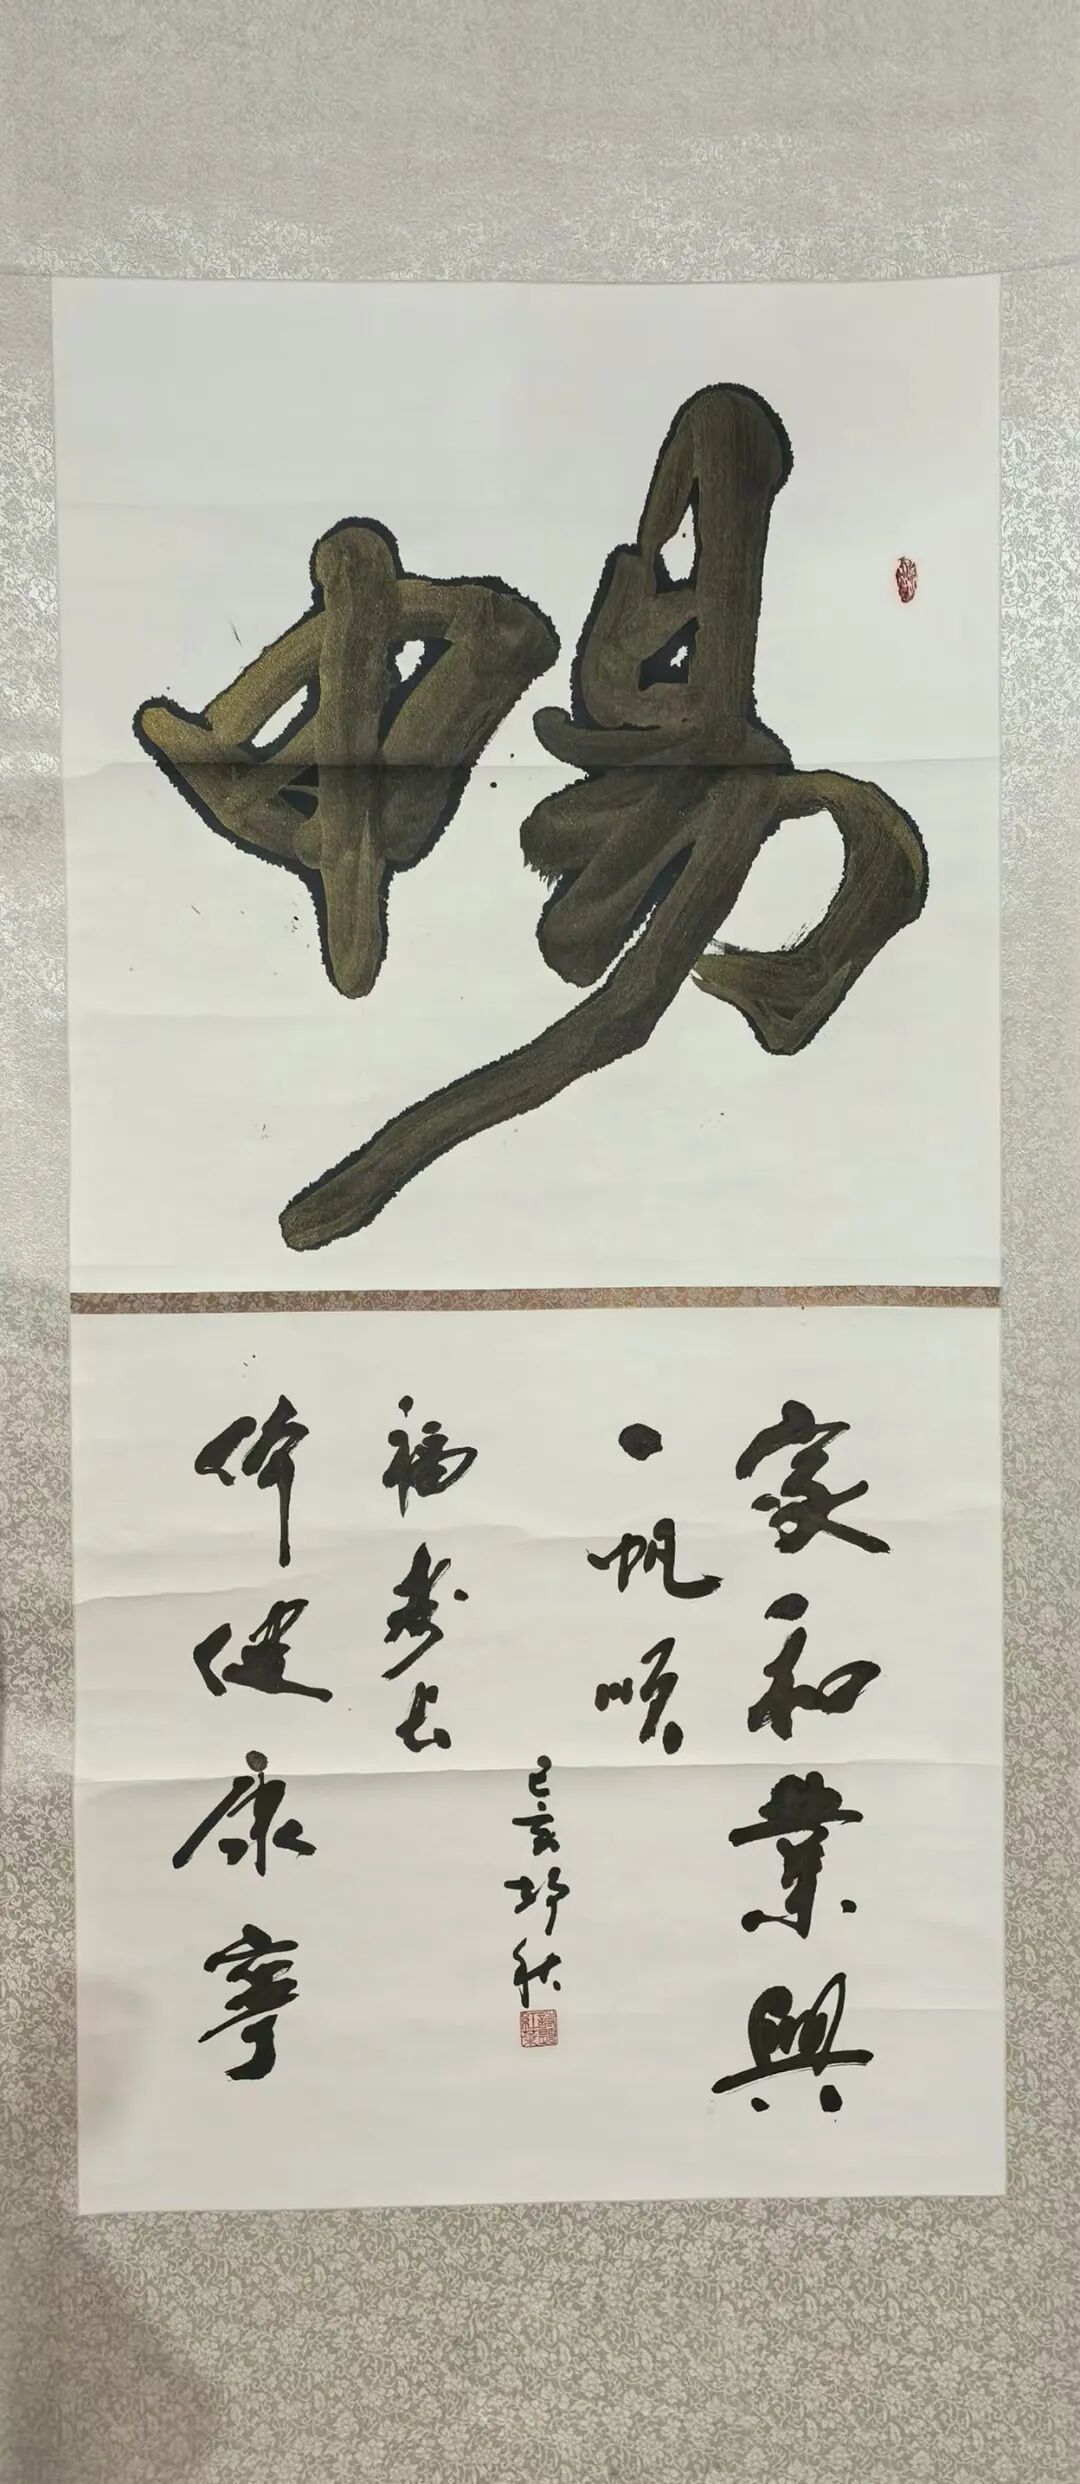 暢
家和業興
一帆順
己亥
福壽长
体健康寧